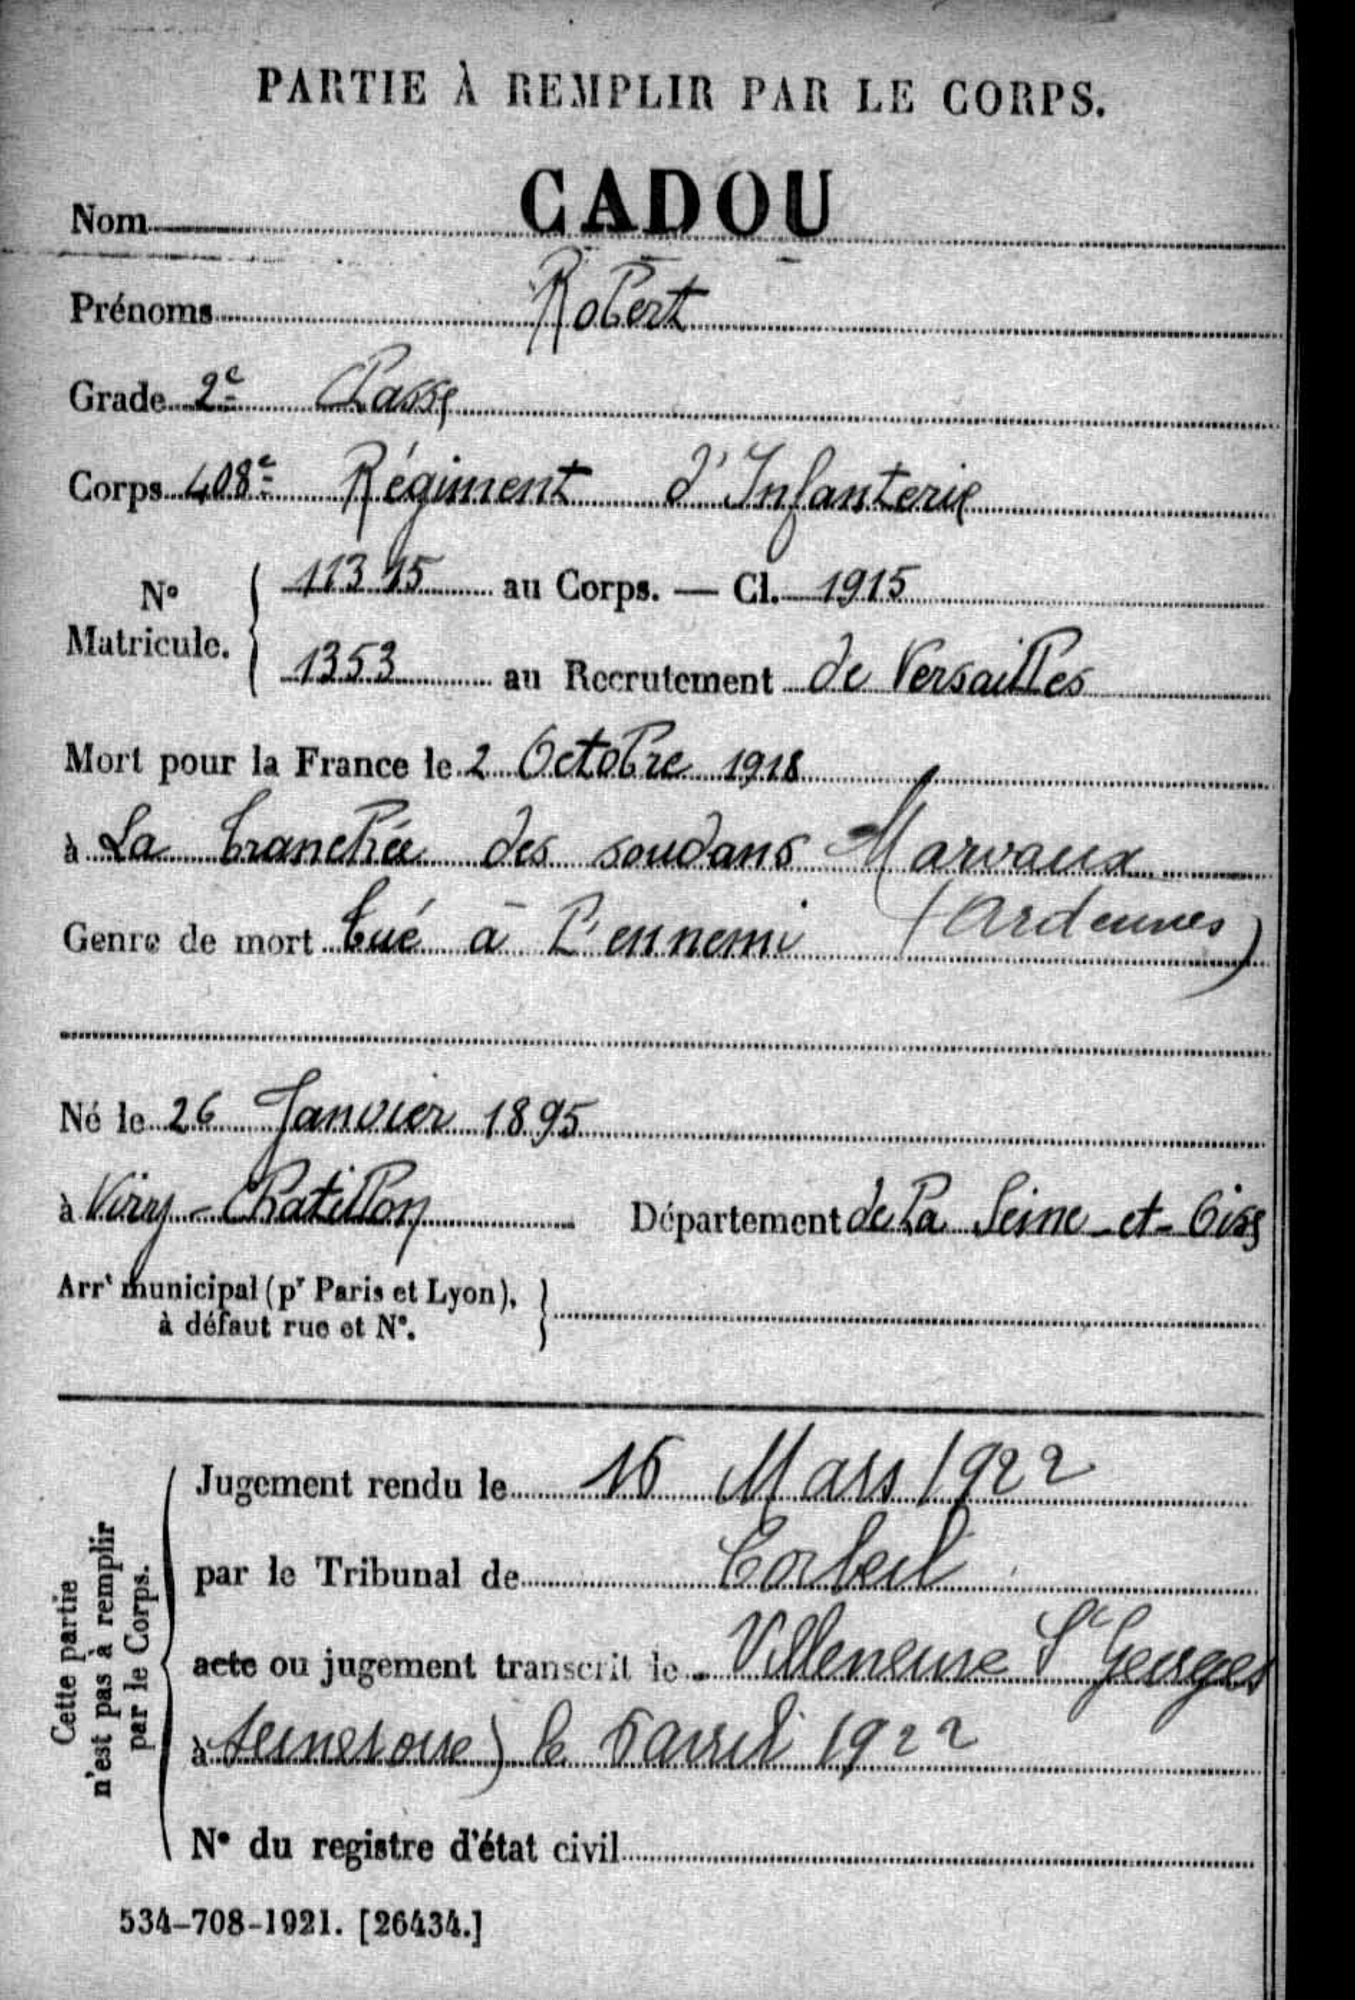 PARTIE À REMPLIR PAR LE CORPS.
Nom CADOU
Prénoms Robert
Grade 2e Classe
Corps 408e Régiment d'Infanterie
No Matricule. { 11315 au Corps. — Cl. 1915
1353 au Recrutement de Versailles
Mort pour la France le 2 Octobre 1918
à La tranchée des soudans Marvaux
(Ardennes)
Genre de mort tué à l'ennemi
Né le 26 Janvier 1895
à Viry-Chatillon Département de la Seine-et-Oise
Arrt municipal (pr Paris et Lyon), }
à défaut rue et No.
Cette partie
n'est pas à remplir
par le Corps.
Jugement rendu le 16 Mars 1922
par le Tribunal de Corbeil
acte ou jugement transcrit le Villeneuve St Georges
à Seine et oise) le 5 avril 1922
No du registre d'état civil
534-708-1921. [26434.]